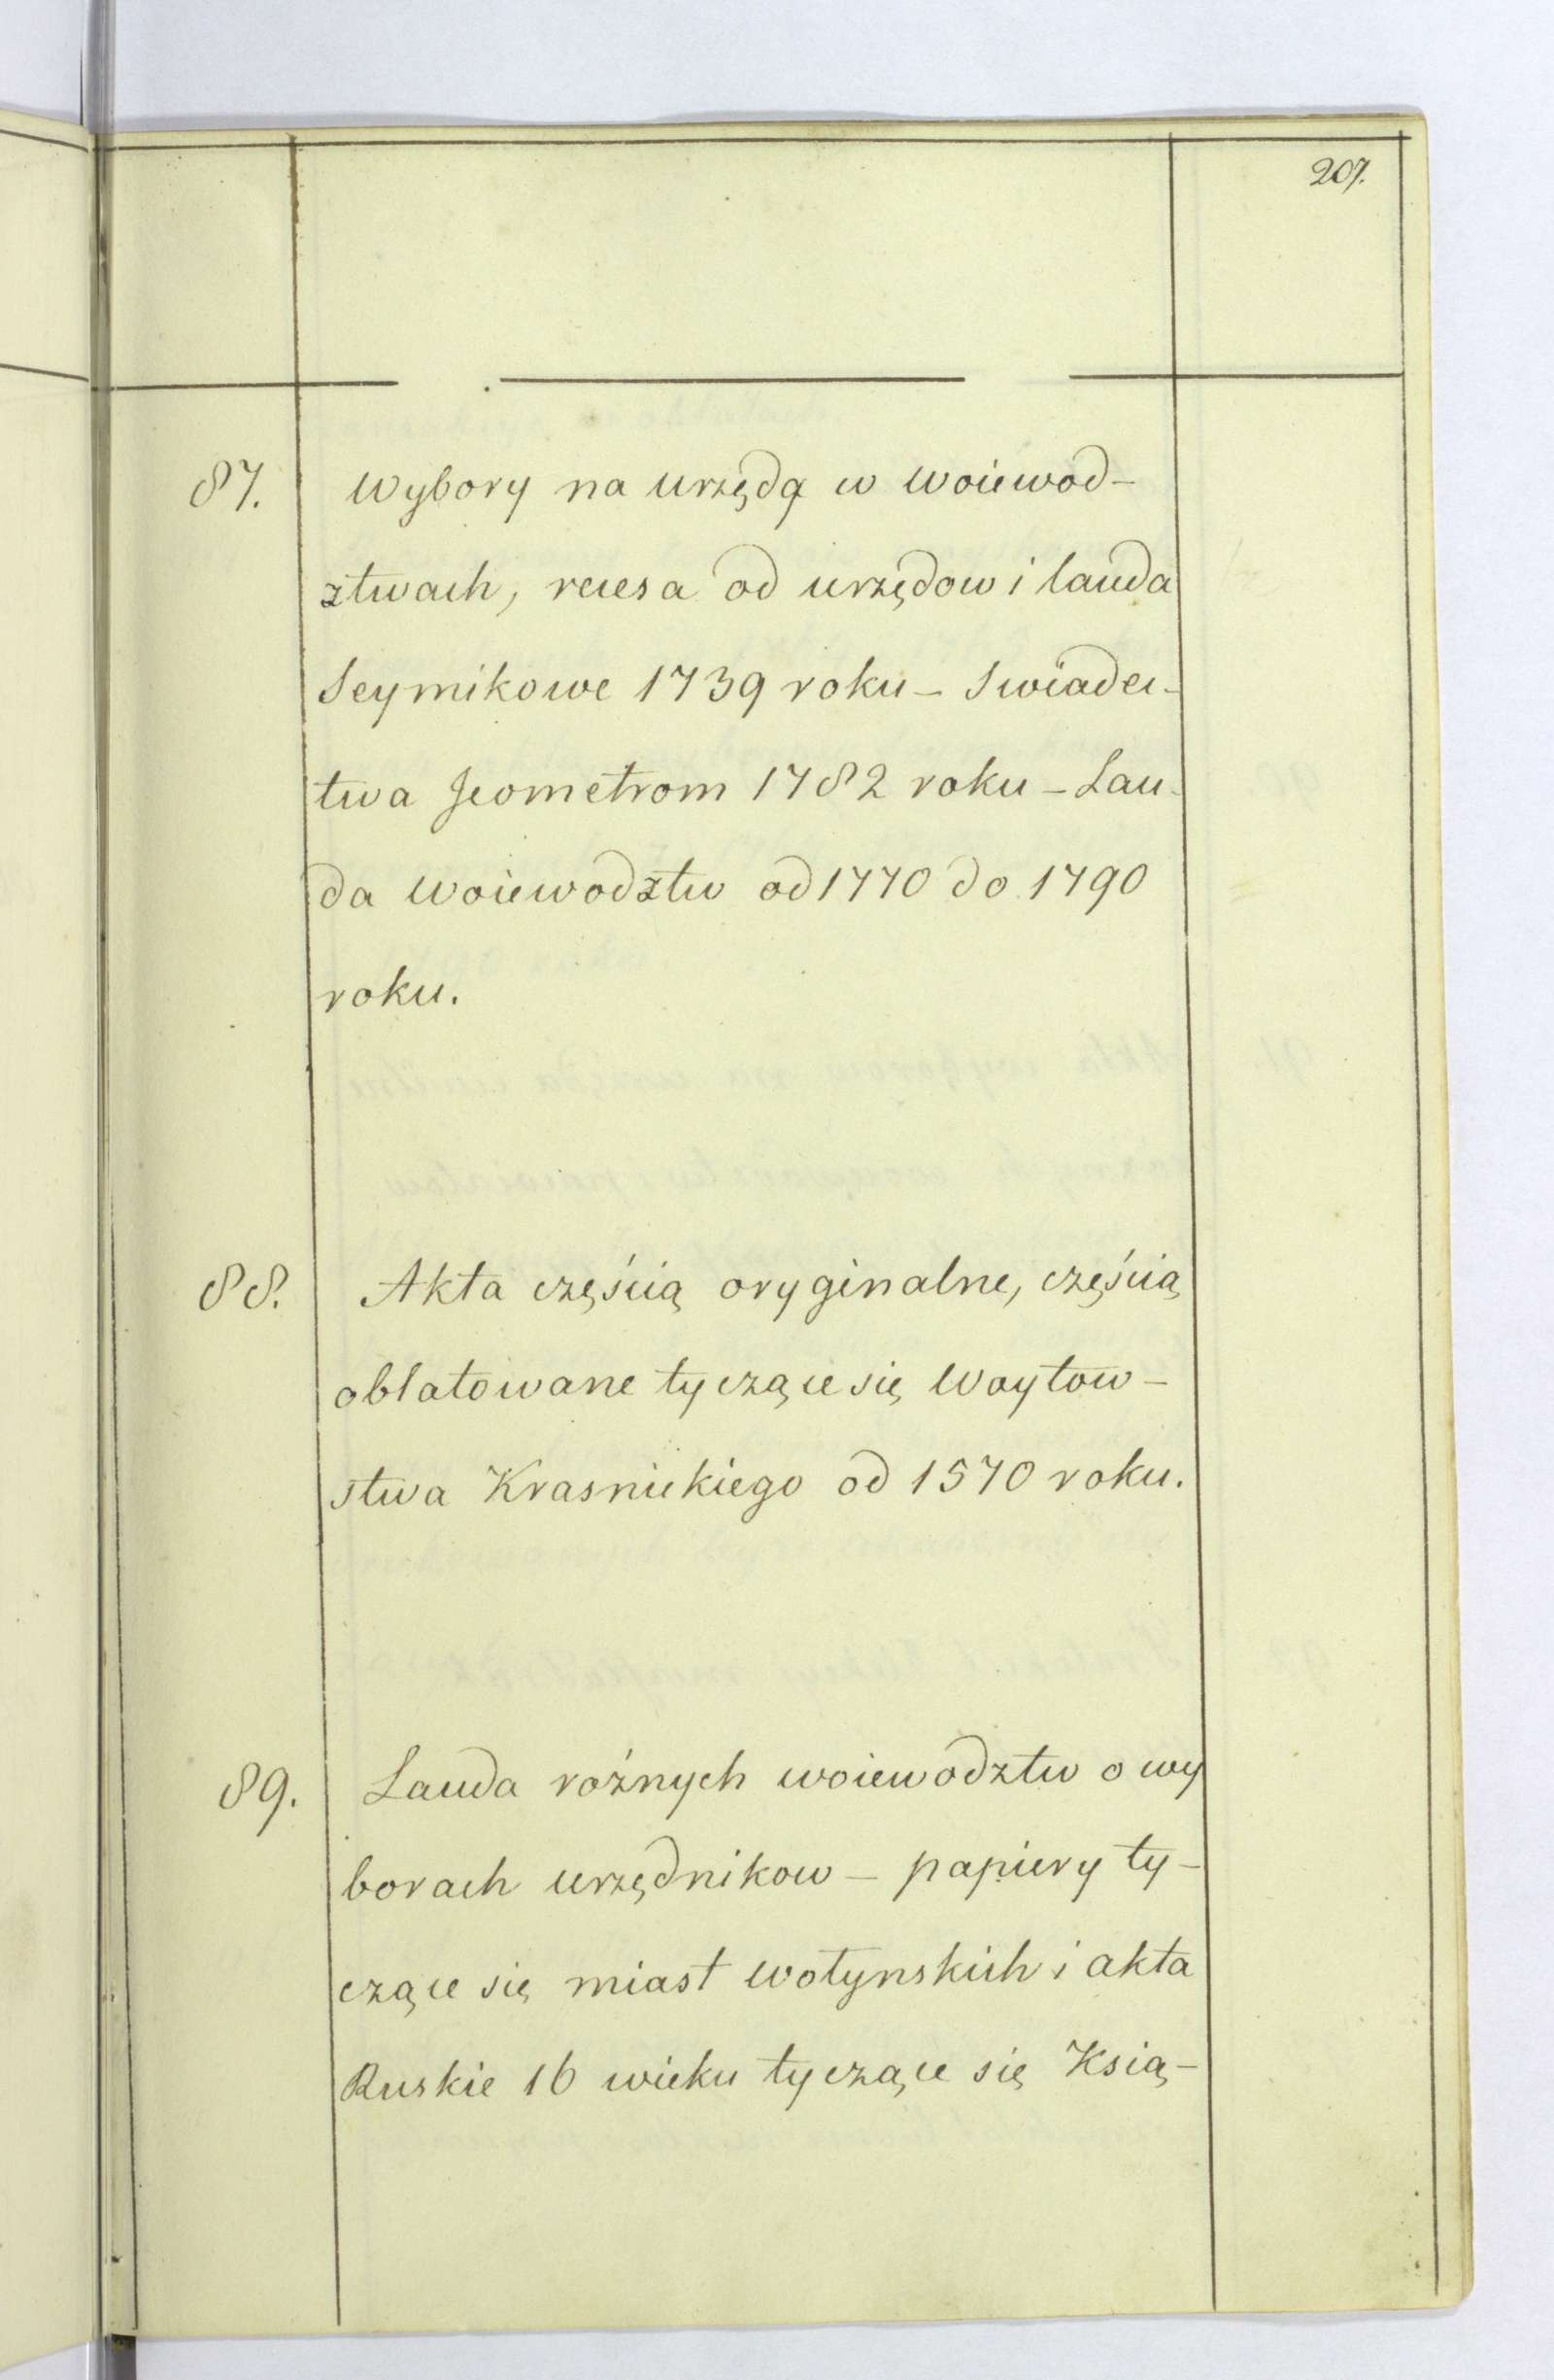 207.
87. Wybory na urzędą w woiewod-
ztwach, recesa od urzędow i lauda
Seymikowe 1739 roku - Swiadec-
twa Jeometrom 1782 roku - Lau-
da woiewodztw od 1770 do 1790
roku.
88. Akta częścią oryginalne, częścią
oblatowane tyczące się Woytow-
stwa Krasnickiego od 1570 roku.
89. Lauda rożnych woiewodztw o wy
borach urzędnikow - papiery ty-
czące się miast wołynskich i akta
Ruskie 16 wieku tyczące się Ksią-